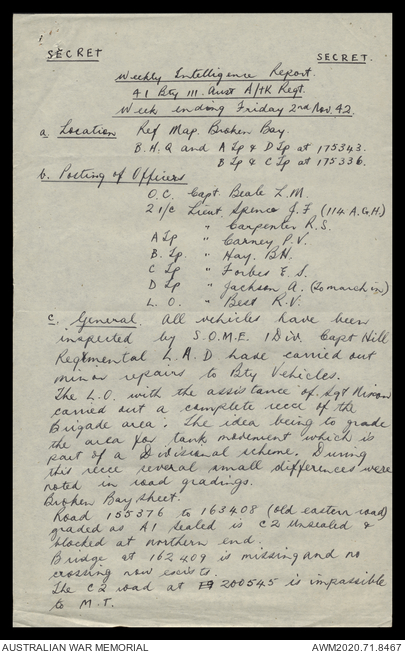 SECRET
SECRET.
Weekly Intelligence Report.
41 Bty 111. Aust A/TK Regt.
Week ending Friday 2nd Nov. 42.
a. Location Ref Map. Broken Bay.
B.H.Q and A Tp & D Tp at 175343.
B Tp & C Tp at 175336.
b. Posting of Officers
O.C. Capt. Beale L.M.
2 i/c Lieut. Spence J.F (114 A.G.H.)
" Carpenter R.S.
A Tp " Carney P.V.
B. Tp. " Hay. B.N.
C Tp " Forbes E.S.
D Tp " Jackson A. (To march in)
L.O. " Best R.V.
c. General. All vehicles have been
inspected by S.O.M.E. 1 Div. Capt Hill
Regimental L.A.D have carried out
minor repairs to Bty Vehicles.
The L.O. with the assistance of Sgt Nixon
carried out a complete recce of the
Brigade area. The idea being to grade
the area for tank movement which is
part of a Divisional scheme. During
this recce several small differences were
noted in road gradings.
Broken Bay sheet.
Road 155376 to 163408 (old eastern road)
graded as A1 Sealed is C2 Unsealed &
blocked at northern end.
Bridge at 162409 is missing and no
crossing now exists.
The C2 road at 200545 is impassible
to M.T.
AUSTRALIAN WAR MEMORIAL
AWM2020.71.8467